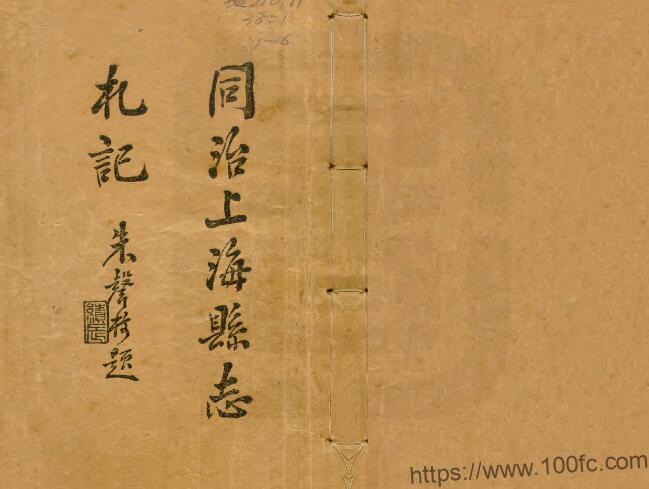 同治上海縣志
札記
朱聲樹題
https://www.100fc.com